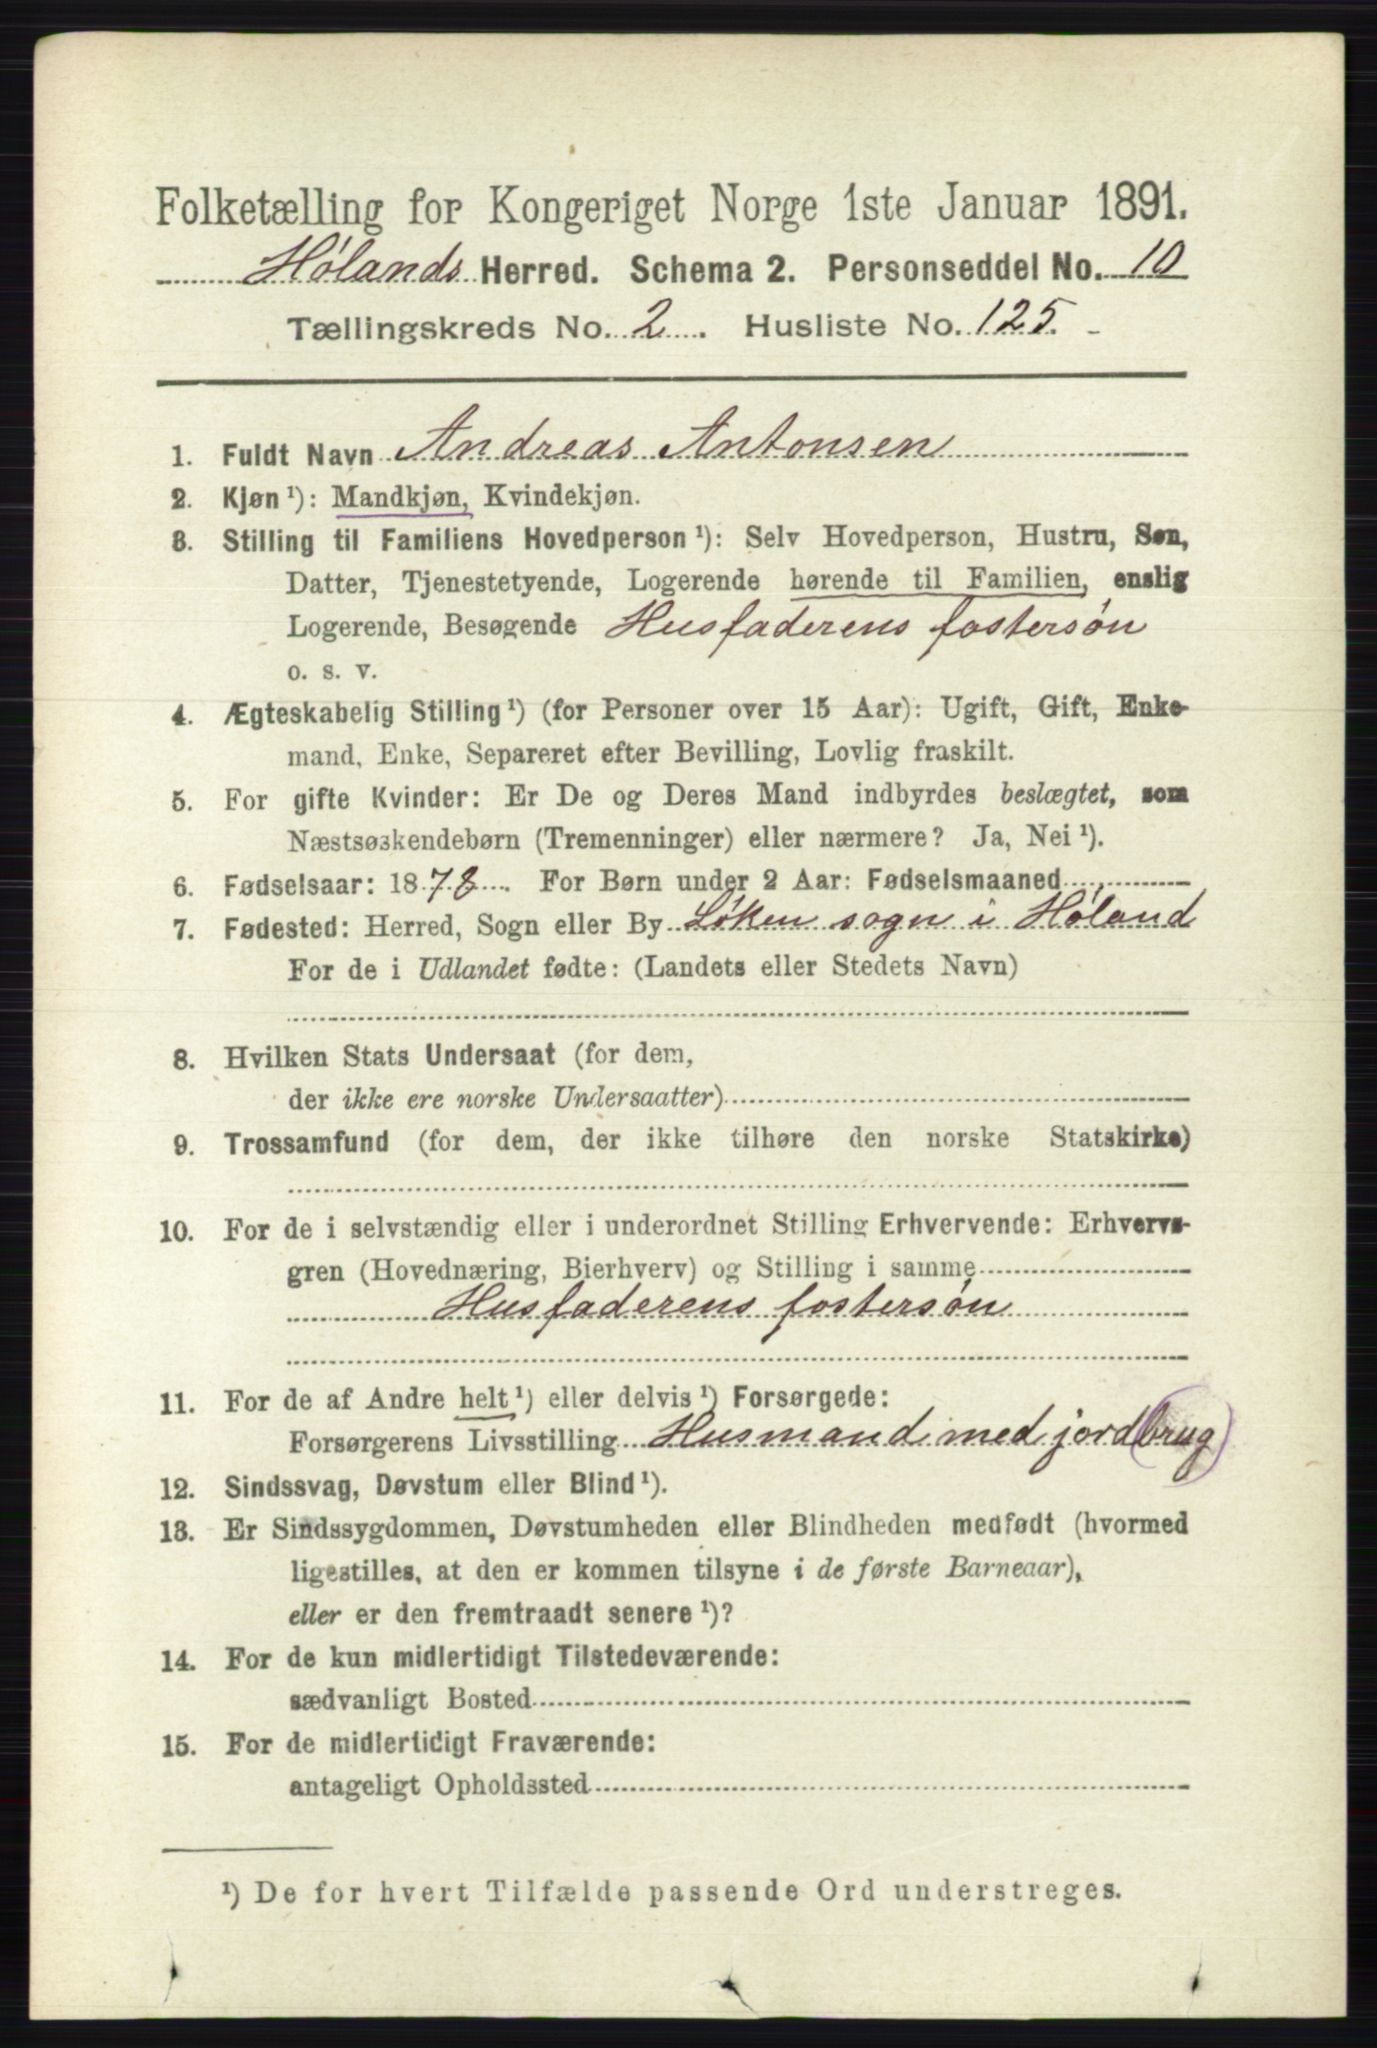 Folketælling for Kongeriget Norge 1ste Januar 1891.
Hølands Herred. Schema 2. Personseddel No. 10
Tællingskreds No. 2. Husliste No. 125.
1. Fuldt Navn Andreas Antonsen
2. Kjøn ¹): Mandkjøn, Kvindekjøn.
3. Stilling til Familiens Hovedperson ¹): Selv Hovedperson, Hustru, Søn,
Datter, Tjenestetyende, Logerende hørende til Familien, enslig
Logerende, Besøgende Husfaderens fostersøn
o. s. v.
4. Ægteskabelig Stilling ¹) (for Personer over 15 Aar): Ugift, Gift, Enke-
mand, Enke, Separeret efter Bevilling, Lovlig fraskilt.
5. For gifte Kvinder: Er De og Deres Mand indbyrdes beslægtet, som
Næstsøskendebørn (Tremenninger) eller nærmere? Ja, Nei ¹).
6. Fødselsaar: 1878. For Børn under 2 Aar: Fødselsmaaned
7. Fødested: Herred, Sogn eller By Løken sogn i Høland
For de i Udlandet fødte: (Landets eller Stedets Navn)
8. Hvilken Stats Undersaat (for dem,
der ikke ere norske Undersaatter)
9. Trossamfund (for dem, der ikke tilhøre den norske Statskirke)
10. For de i selvstændig eller i underordnet Stilling Erhvervende: Erhvervs-
gren (Hovednæring, Bierhverv) og Stilling i samme
Husfaderens fostersøn
11. For de af Andre helt ¹) eller delvis ¹) Forsørgede:
Forsørgerens Livsstilling Husmand med jord(brug)
12. Sindssvag, Døvstum eller Blind ¹).
13. Er Sindssygdommen, Døvstumheden eller Blindheden medfødt (hvormed
ligestilles, at den er kommen tilsyne i de første Barneaar),
eller er den fremtraadt senere ¹)?
14. For de kun midlertidigt Tilstedeværende:
sædvanligt Bosted
15. For de midlertidigt Fraværende:
antageligt Opholdssted
¹) De for hvert Tilfælde passende Ord understreges.